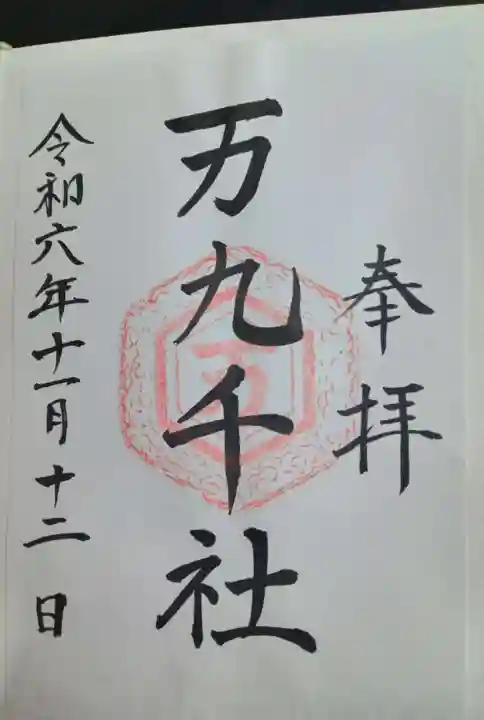 奉拝
万九千社
令和六年十一月十二日